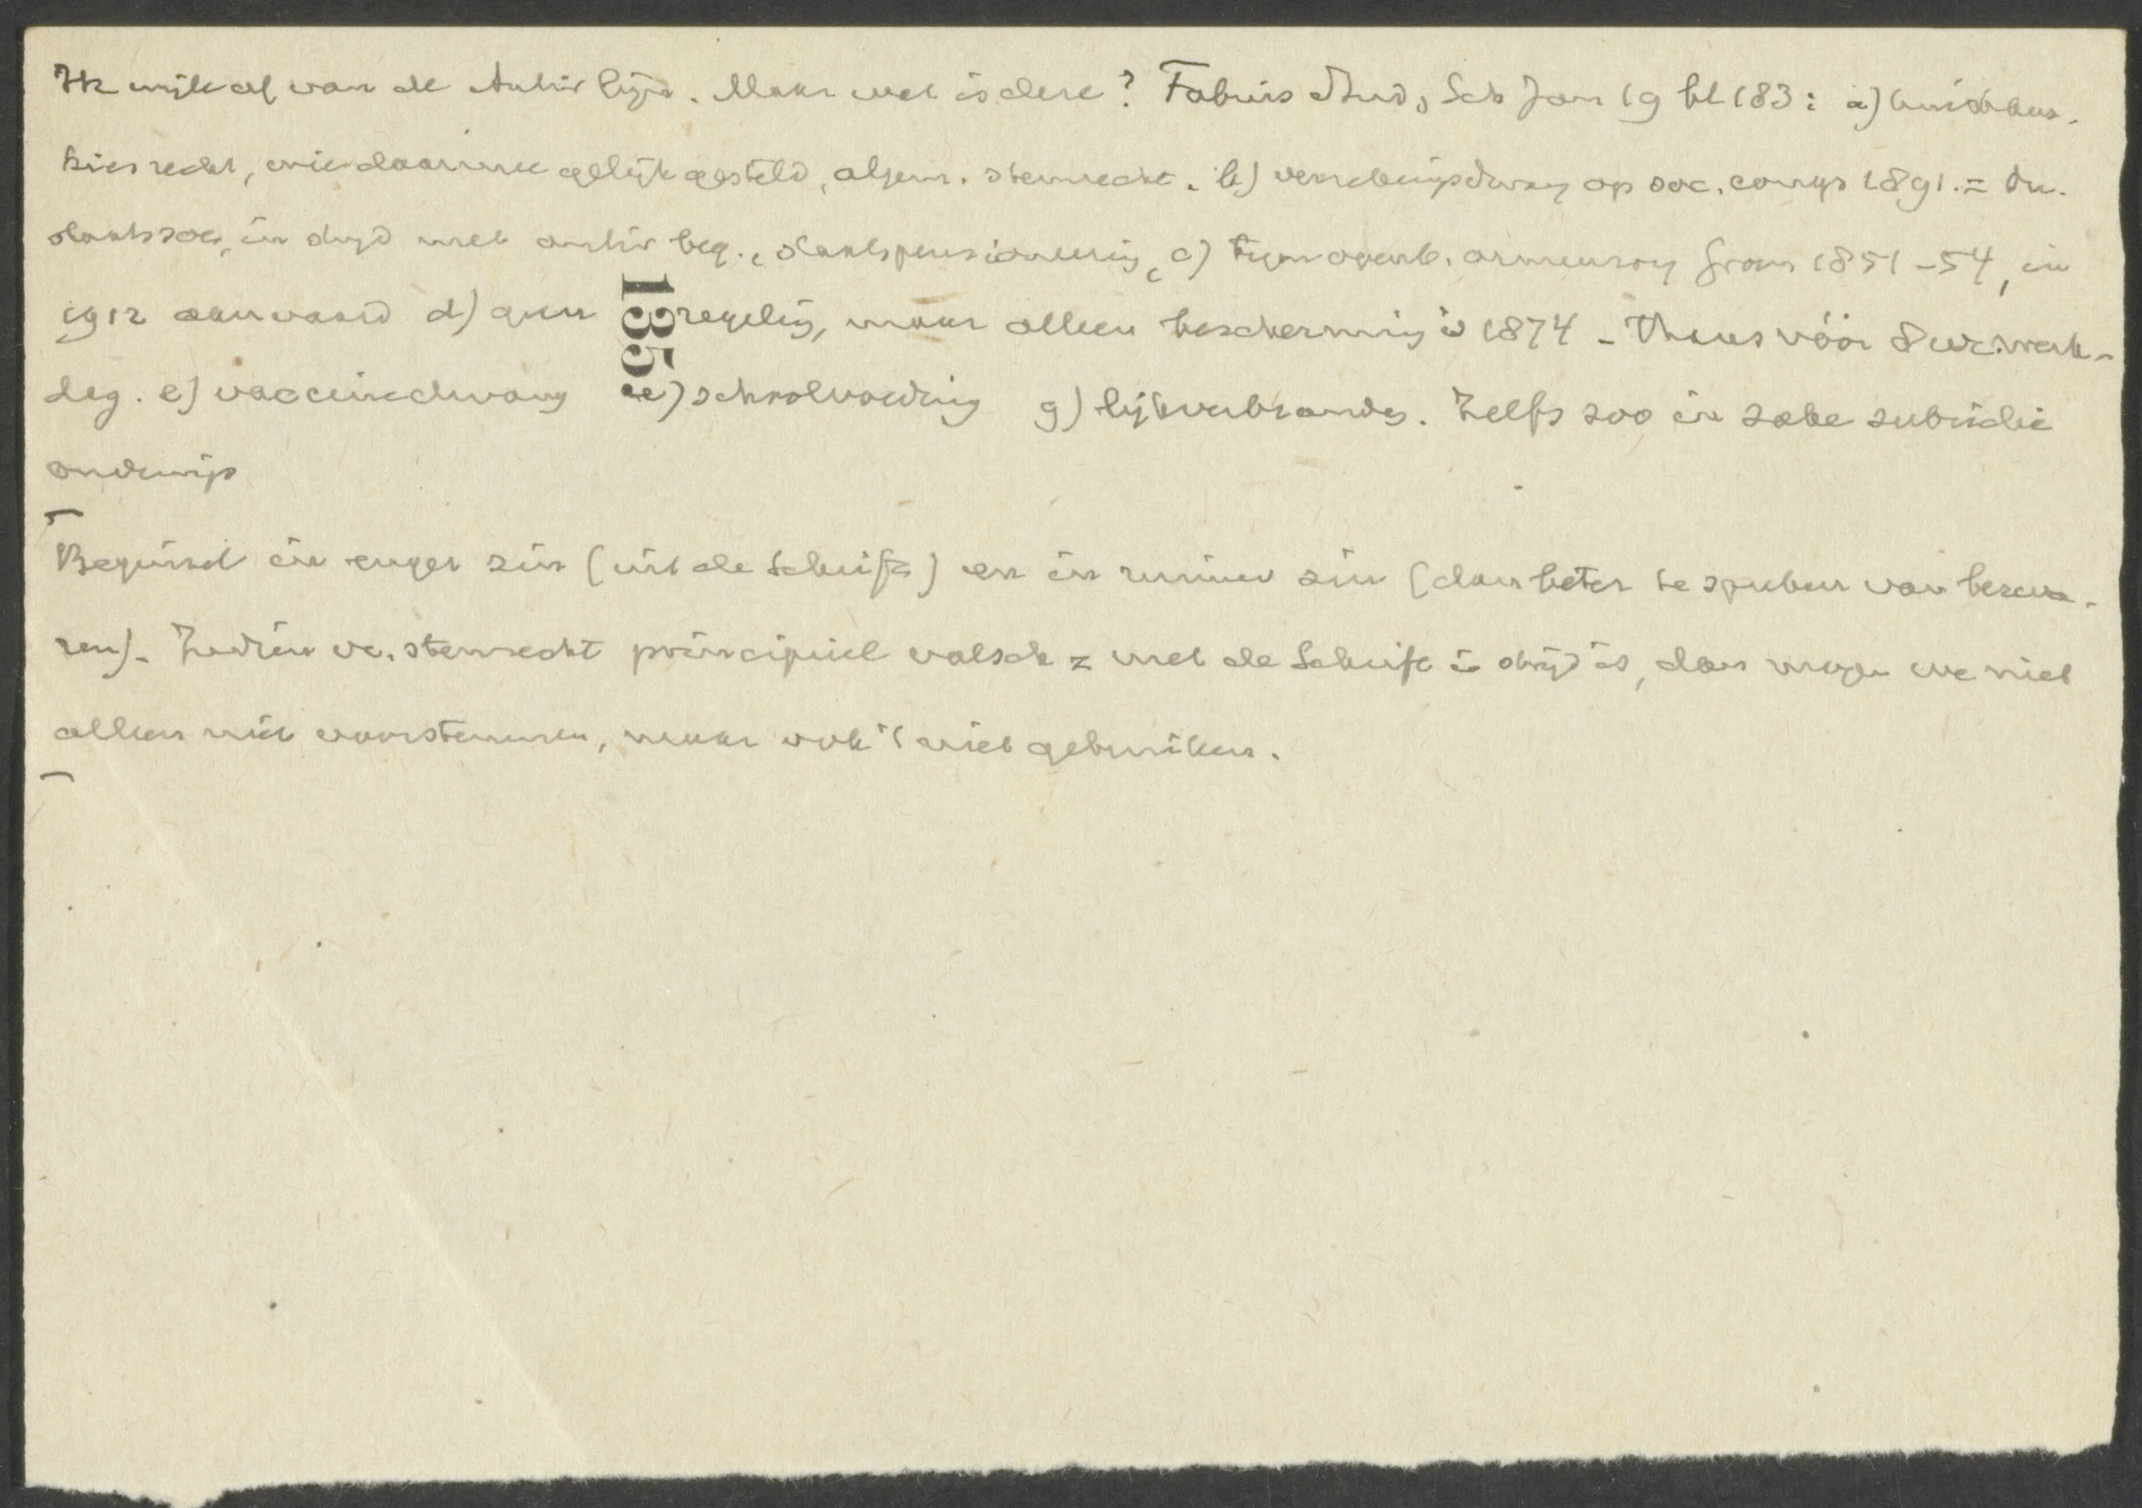 Ik wijk af van de Antir lijn. Maar wat is deze? Fabius Stud, Sch Jan 19 bl 183: a) huismans-
kiesrecht, wie daarmee gelijk gesteld, algem. stemrecht. b) verzekeringsdwang op soc. congr 1891. =
staatssoc, in strijd met antir beg., staatspensioneering, c) tegen openb. armenzorg Groen 1851-54, in
1912 aanvaard d) geen regeling, maar alleen bescherming in 1874 - Thans vóór 8 ur. werk-
dag. e) vaccinedwang e) schoolvoeding g) lijkverbranding. Zelfs zoo in zake subsidie
onderwijs
Beginsel in enger zin (uit de Schrift) en in ruimer zin (dan beter te spreken van
). Indien vr. stemrecht principieel valsch = met de Schrift in strijd is, dan mogen we niet
alleen niet voorstemmen, maar ook 't niet gebruiken.
1358